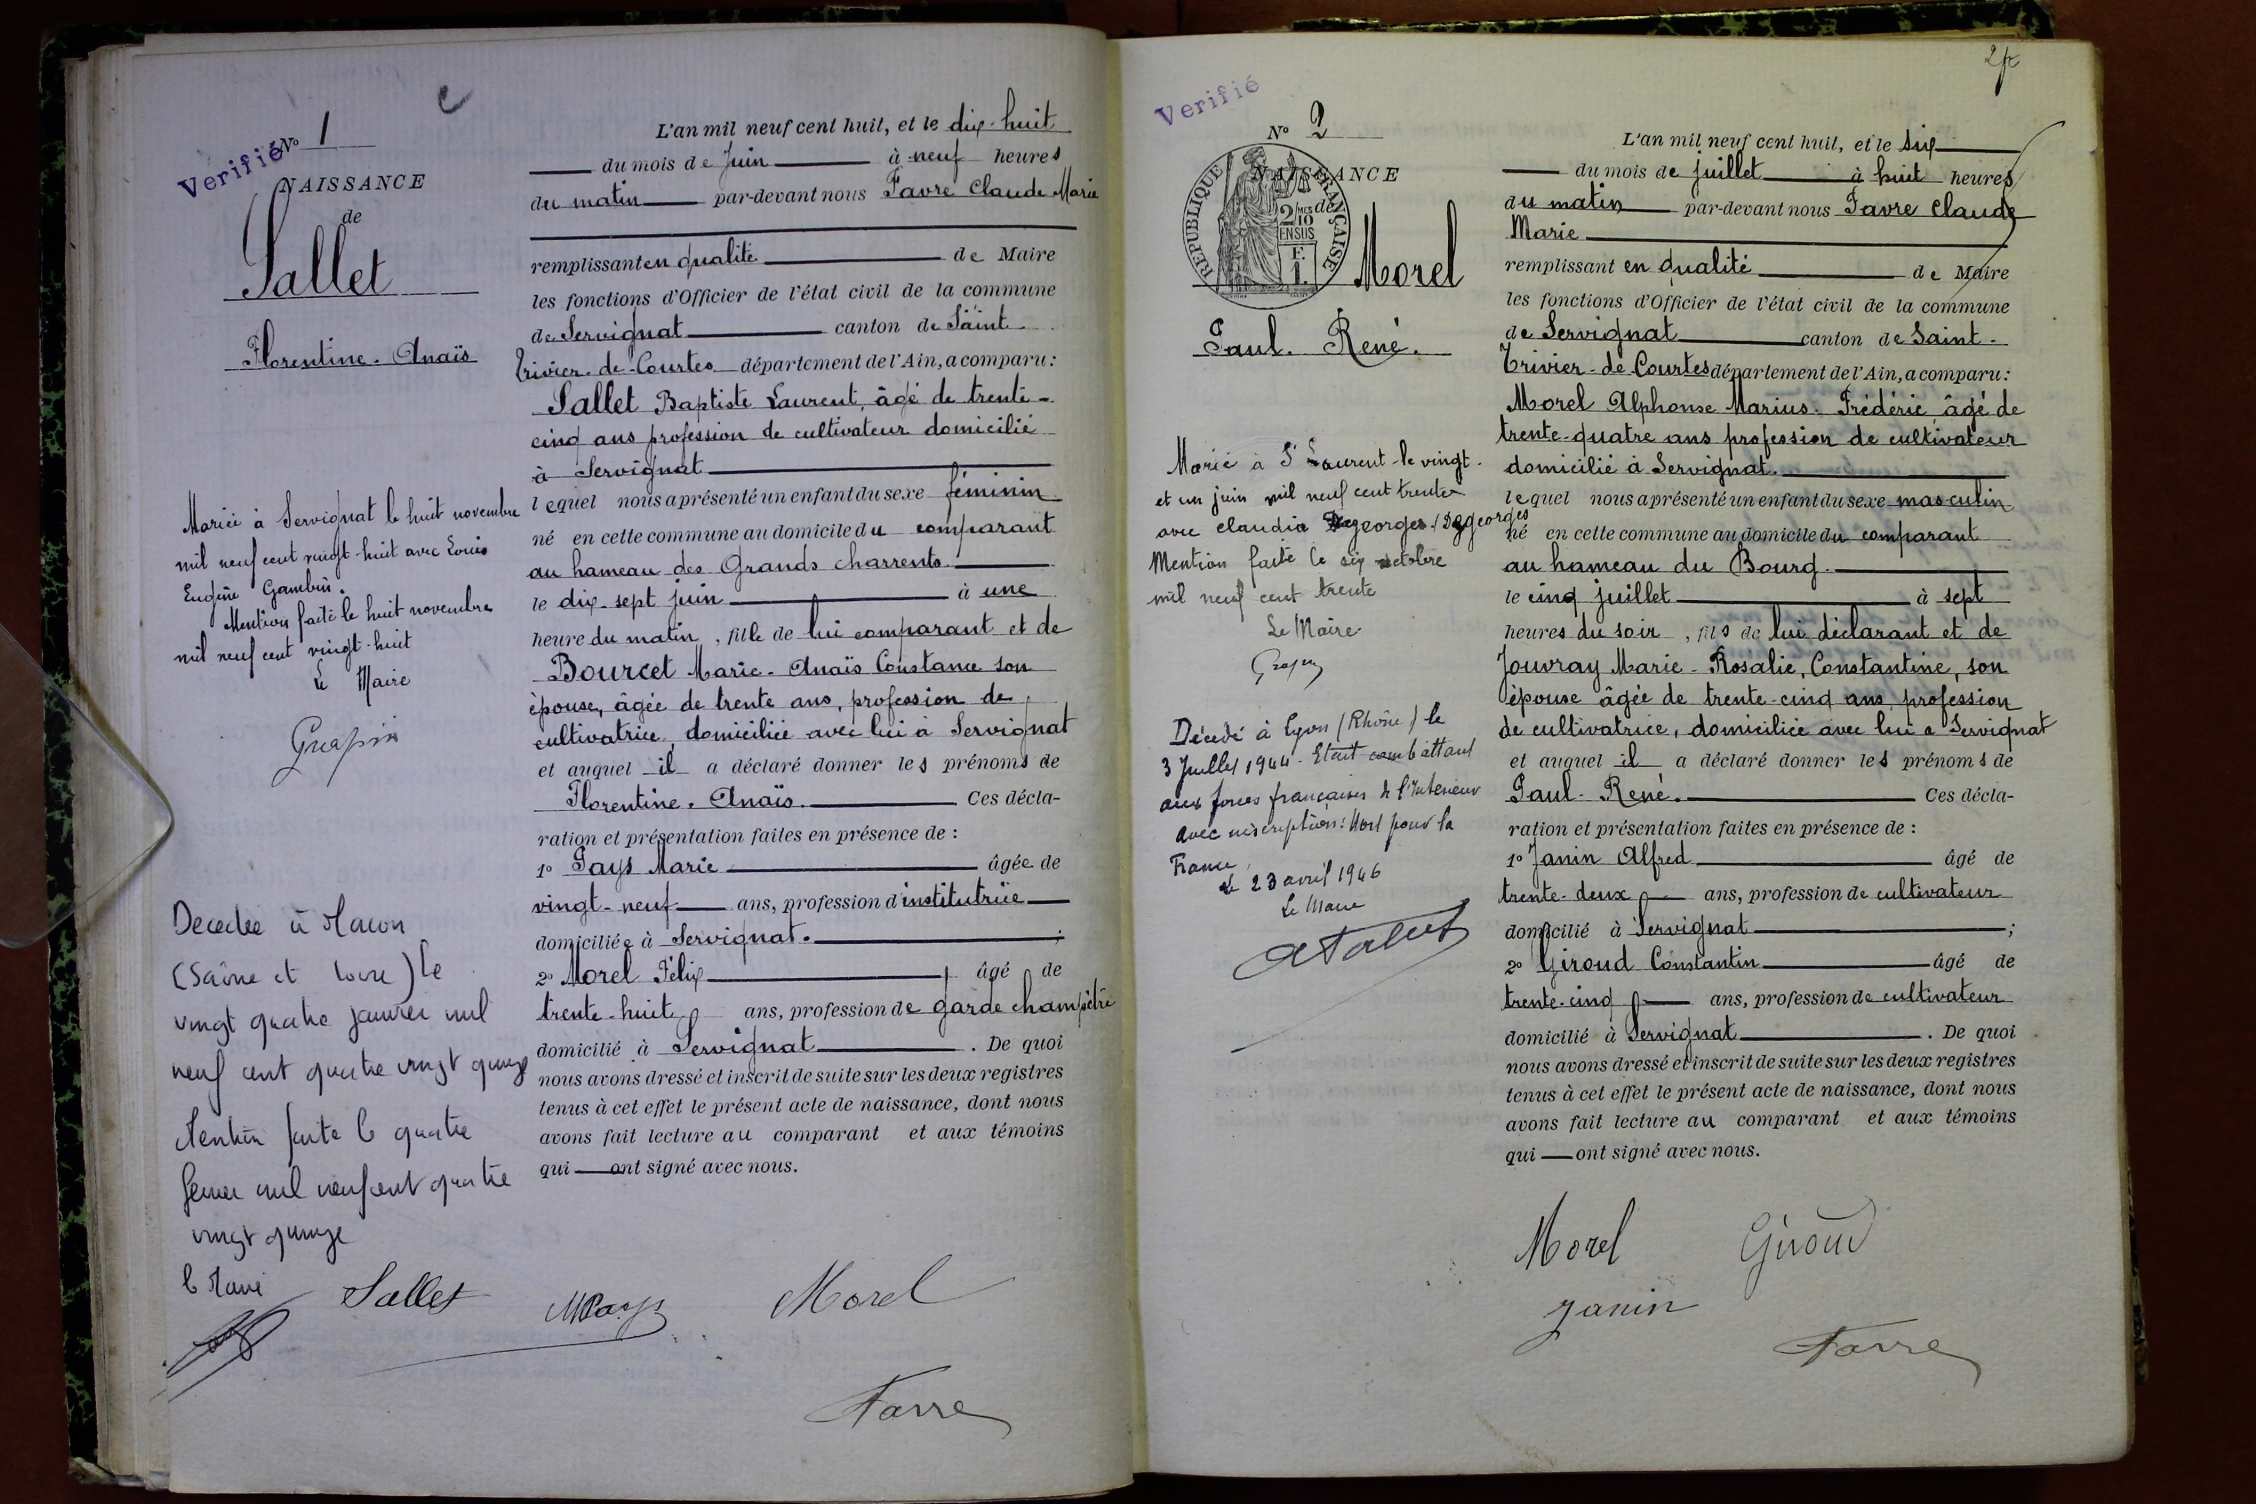 Verifié
No 1
NAISSANCE
de
Sallet
Florentine. Anaïs
Mariée à Servignat le huit novembre
mil neuf cent vingt-huit avec Louis
Eugène Gambin.
Mention faite le huit novembre
mil neuf cent vingt-huit
Le Maire
Décédée à Macon
(Saône et Loire) le
vingt quatre janvier mil
neuf cent quatre vingt quinze
Mention faite le quatre
mil neuf cent quatre
vingt quinze
le Maire
L'an mil neuf cent huit, et le dix-huit
du mois de Juin à neuf heures
du matin par-devant nous Favre Claude Marie
remplissant en qualité de Maire
les fonctions d'Officier de l'état civil de la commune
de Servignat canton de Saint
Trivier-de-Courtes département de l'Ain, a comparu:
Sallet Baptiste Laurent, âgé de trente-
cinq ans profession de cultivateur domicilié
à Servignat
lequel nous a présenté un enfant du sexe féminin
né en cette commune au domicile du comparant
au hameau des Grands charrents.
le dix-sept juin à une
heure du matin, fille de lui comparant et de
Bourcet Marie-Anaïs Constance son
épouse, âgée de trente ans, profession de
cultivatrice, domiciliée avec lui à Servignat
et auquel il a déclaré donner les prénoms de
Florentine. Anaïs. Ces décla-
ration et présentation faites en présence de :
1o Pays Marie âgée de
vingt-neuf ans, profession d'institutrice
domiciliée à Servignat. ;
2o Morel Félix âgé de
trente-huit ans, profession de garde champêtre
domicilié à Servignat . De quoi
nous avons dressé et inscrit de suite sur les deux registres
tenus à cet effet le présent acte de naissance, dont nous
avons fait lecture au comparant et aux témoins
qui ont signé avec nous.
Sallet MPays Morel
Favre
Verifié
No 2
NAISSANCE
de
RÉPUBLIQUE FRANÇAISE
2/10
EN SUS
F.
1.
Morel
Paul. René.
Marié à St Laurent le vingt-
et un juin mil neuf cent trente
avec Claudia Degeorges / Degeorges
Mention faite le six octobre
mil neuf cent trente
Le Maire
Décédé à Lyon (Rhône) le
3 Juillet 1944. Etait combattant
aux forces françaises de l'Intérieur
avec inscription: Mort pour la
France.
Le 23 avril 1946
Le Maire
L'an mil neuf cent huit, et le six
du mois de juillet à huit heures
du matin par-devant nous Favre Claude
Marie
remplissant en qualité de Maire
les fonctions d'Officier de l'état civil de la commune
de Servignat canton de Saint-
Trivier-de-Courtes département de l'Ain, a comparu:
Morel Alphonse Marius. Frédéric âgé de
trente-quatre ans profession de cultivateur
domicilié à Servignat.
lequel nous a présenté un enfant du sexe masculin
né en cette commune au domicile du comparant
au hameau du Bourg.
le cinq juillet à sept
heures du soir, fils de lui déclarant et de
Jouvray Marie-Rosalie, Constantine, son
épouse âgée de trente-cinq ans, profession
de cultivatrice, domiciliée avec lui à Servignat
et auquel il a déclaré donner les prénoms de
Paul-René. Ces décla-
ration et présentation faites en présence de :
1o Janin Alfred âgé de
trente-deux ans, profession de cultivateur
domicilié à Servignat ;
2o Giroud Constantin âgé de
trente-cinq ans, profession de cultivateur
domicilié à Servignat . De quoi
nous avons dressé et inscrit de suite sur les deux registres
tenus à cet effet le présent acte de naissance, dont nous
avons fait lecture au comparant et aux témoins
qui ont signé avec nous.
Morel Giroud
Janin
Favre